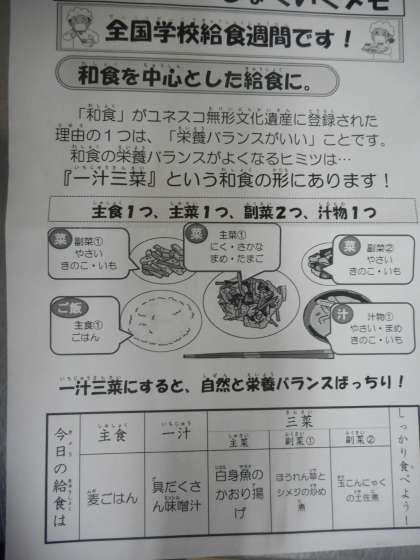 くいくメモ
全国学校給食週間です！
和食を中心とした給食に。
「和食」がユネスコ無形文化遺産に登録された
理由の１つは、「栄養バランスがいい」ことです。
和食の栄養バランスがよくなるヒミツは…
『一汁三菜』という和食の形にあります！
主食１つ、主菜１つ、副菜２つ、汁物１つ
菜
副菜①
やさい
きのこ・いも
菜
主菜①
にく・さかな
まめ・たまご
菜
副菜②
やさい
きのこ・いも
ご飯
主食①
ごはん
汁
汁物①
やさい・まめ
きのこ・いも
一汁三菜にすると、自然と栄養バランスばっちり！
今日の給食は
主食
一汁
三菜
主菜
副菜①
副菜②
麦ごはん
具だくさ
ん味噌汁
白身魚の
かおり揚
げ
ほうれん草と
シメジの炒め
煮
玉こんにゃく
の土佐煮
しっかり食べよう！